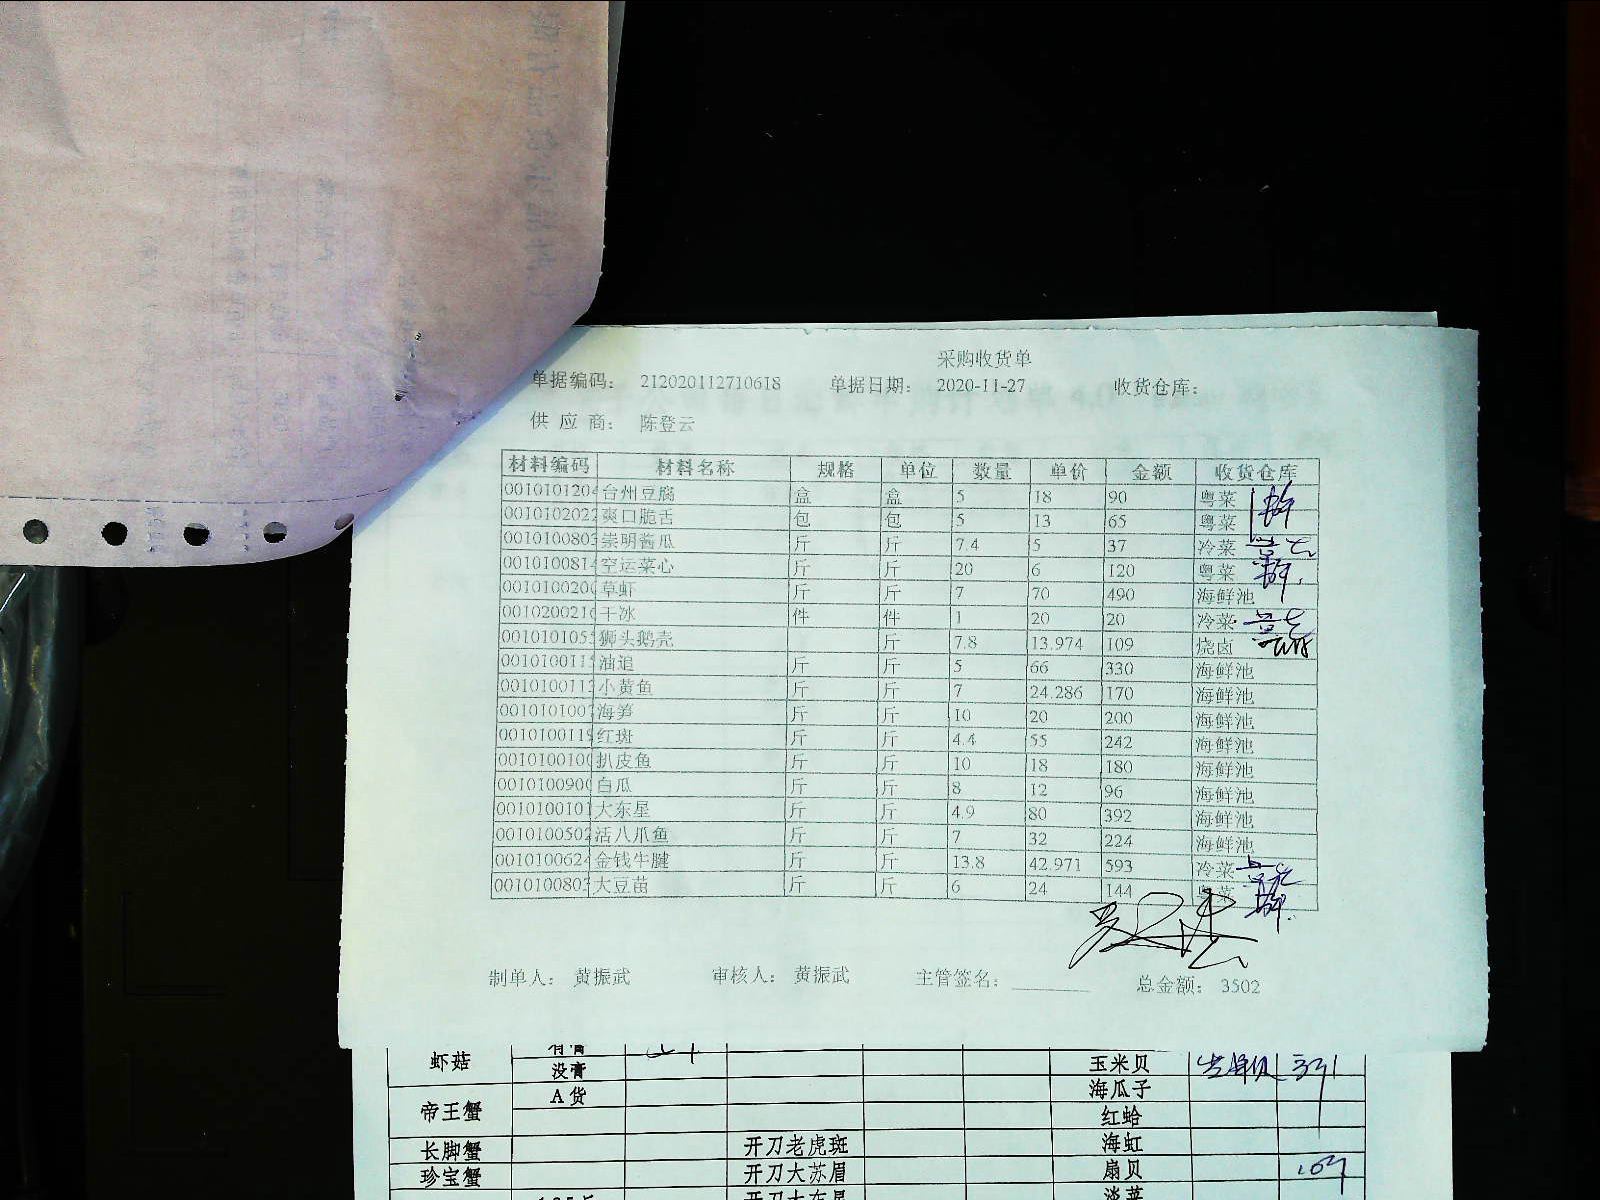 采购收货单
单据编码： 212020112710618 单据日期： 2020-11-27 收货仓库：
供应商： 陈登云
材料编码 材料名称 规格 单位 数量 单价 金额 收货仓库
0010101204 台州豆腐 盒 盒 5 18 90 粤菜
0010102022 爽口脆舌 包 包 5 13 65 粤菜
001010080 崇明酱瓜 斤 斤 7.4 5 37 冷菜
001010081 空运菜心 斤 斤 20 6 120 粤菜
001010020 草虾 斤 斤 7 70 490 海鲜池
001020021 干冰 件 件 1 20 20 冷菜
001010105 狮头鹅壳 斤 7.8 13.974 109 烧卤
001010011 油追 斤 斤 5 66 330 海鲜池
001010011 小黄鱼 斤 斤 7 24.286 170 海鲜池
001010100 海笋 斤 斤 10 20 200 海鲜池
001010011 红斑 斤 斤 4.4 55 242 海鲜池
001010010 扒皮鱼 斤 斤 10 18 180 海鲜池
001010090 白瓜 斤 斤 8 12 96 海鲜池
001010010 大东星 斤 斤 4.9 80 392 海鲜池
0010100502 活八爪鱼 斤 斤 7 32 224 海鲜池
0010100624 金钱牛腱 斤 斤 13.8 42.971 593 冷菜
001010080 大豆苗 斤 斤 6 24 144 粤菜
制单人： 黄振武 审核人： 黄振武 主管签名： 总金额： 3502
虾菇 有膏
没膏 玉米贝
帝王蟹 A货 海瓜子
红蛤
长脚蟹 开刀老虎斑 海虹
珍宝蟹 开刀大苏眉 扇贝
开刀大东星 淡菜